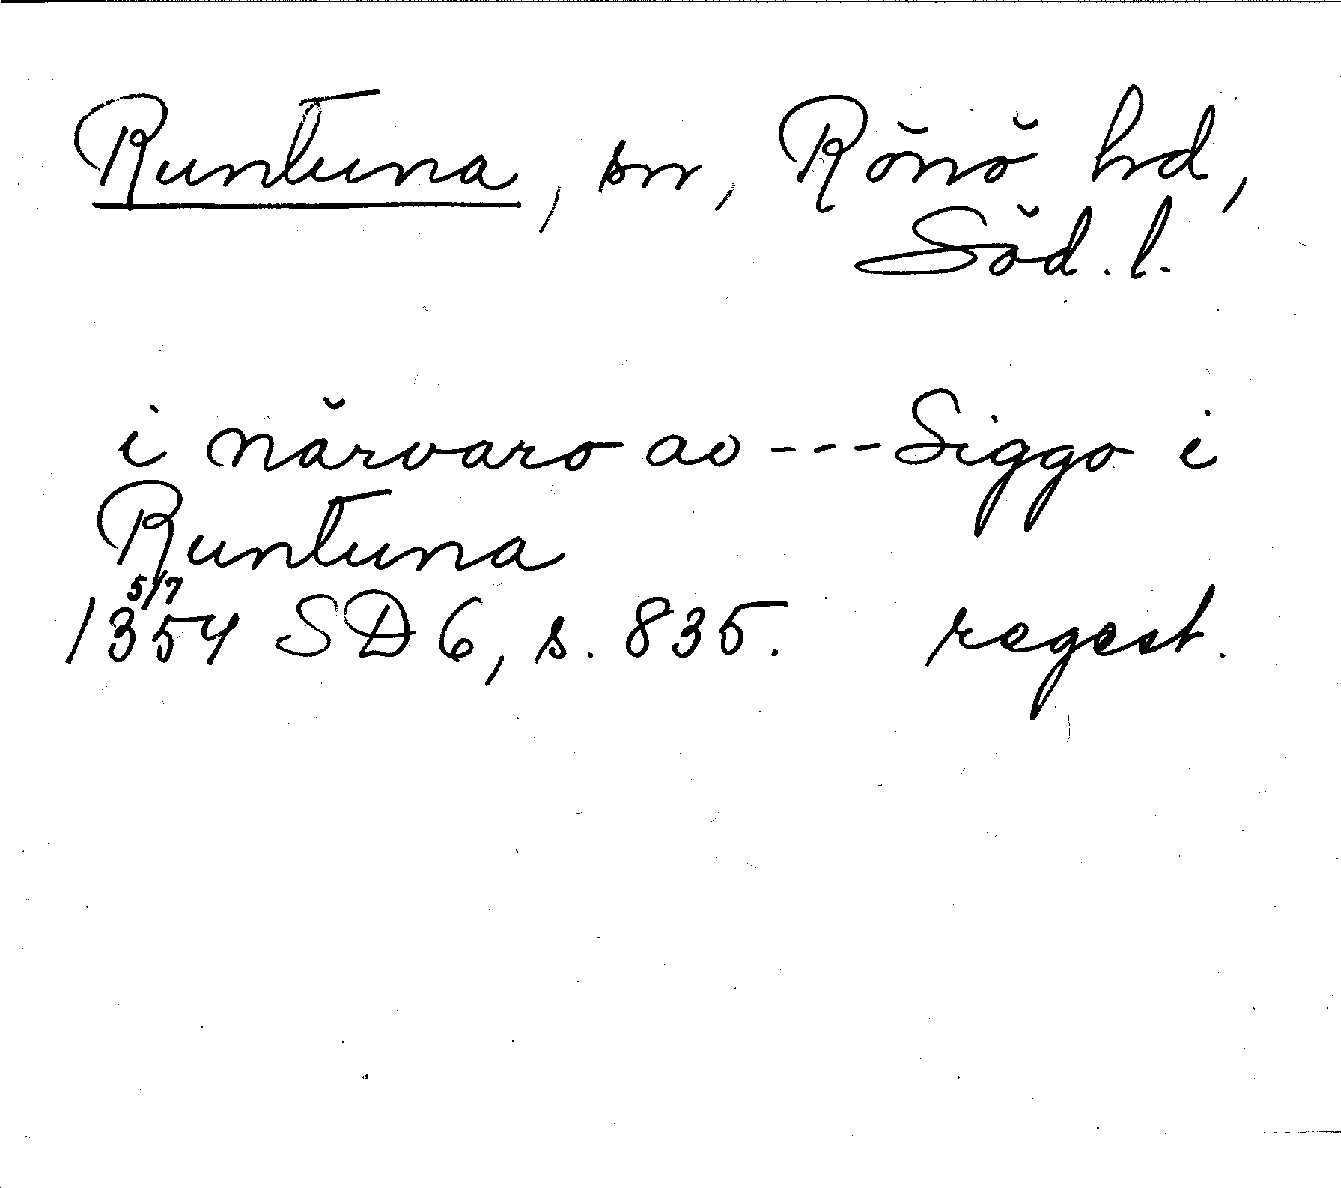 Runtuna, sn, Rönö hd,
Söd. l.
i närvaro av --- Siggo i
Runtuna
5/7
1354 SD 6, s. 835. regest.